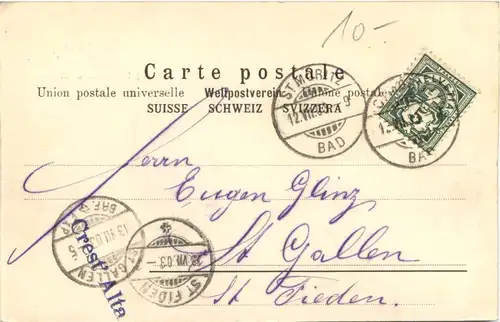 10-
Carte postale
Union postale universelle Weltpostverein Unione postale
SUISSE SCHWEIZ SVIZZERA
ST. MORITZ
12.VII.03
BAD
HELVETIA
5
Herrn
Eugen Glinz
St Gallen
St Fieden.
ST. GALLEN
ST FIDEN
13 VII.03
Crest'Alta